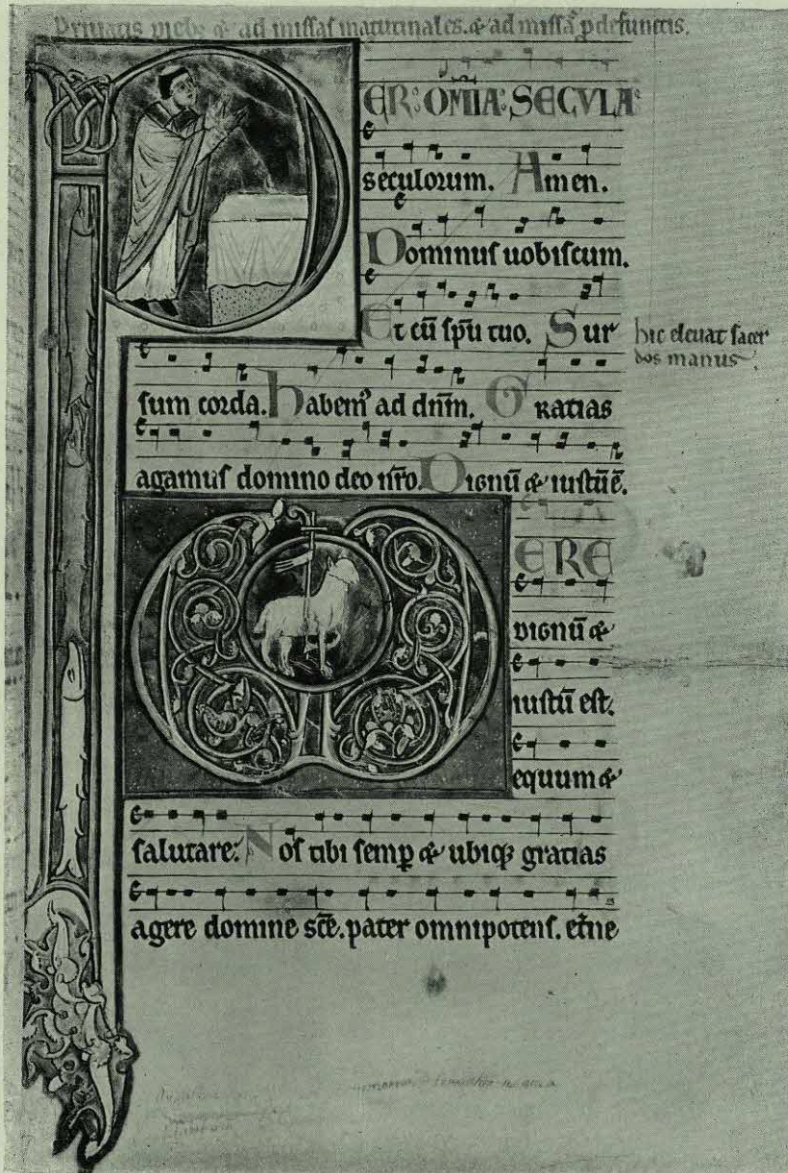 Privatis diebȝ & ad missas matutinales. & ad missā p defunctis.
PER: OM̅IA: SECVLA
seculorum. Amen.
Dominus uobiscum.
Et cū sp̅u tuo. Sur
hic eleuat sacer
dos manus.
sum corda. habem᷒ ad dn̅m. Gratias
agamus domino deo nr̅o. Dignū & iustū ē.
VERE
dignū &
iustū est.
equum &
salutare: Nos tibi semp̱ & ubiqȝ gratias
agere domine sc̅e. pater omnipotens. et̅ne